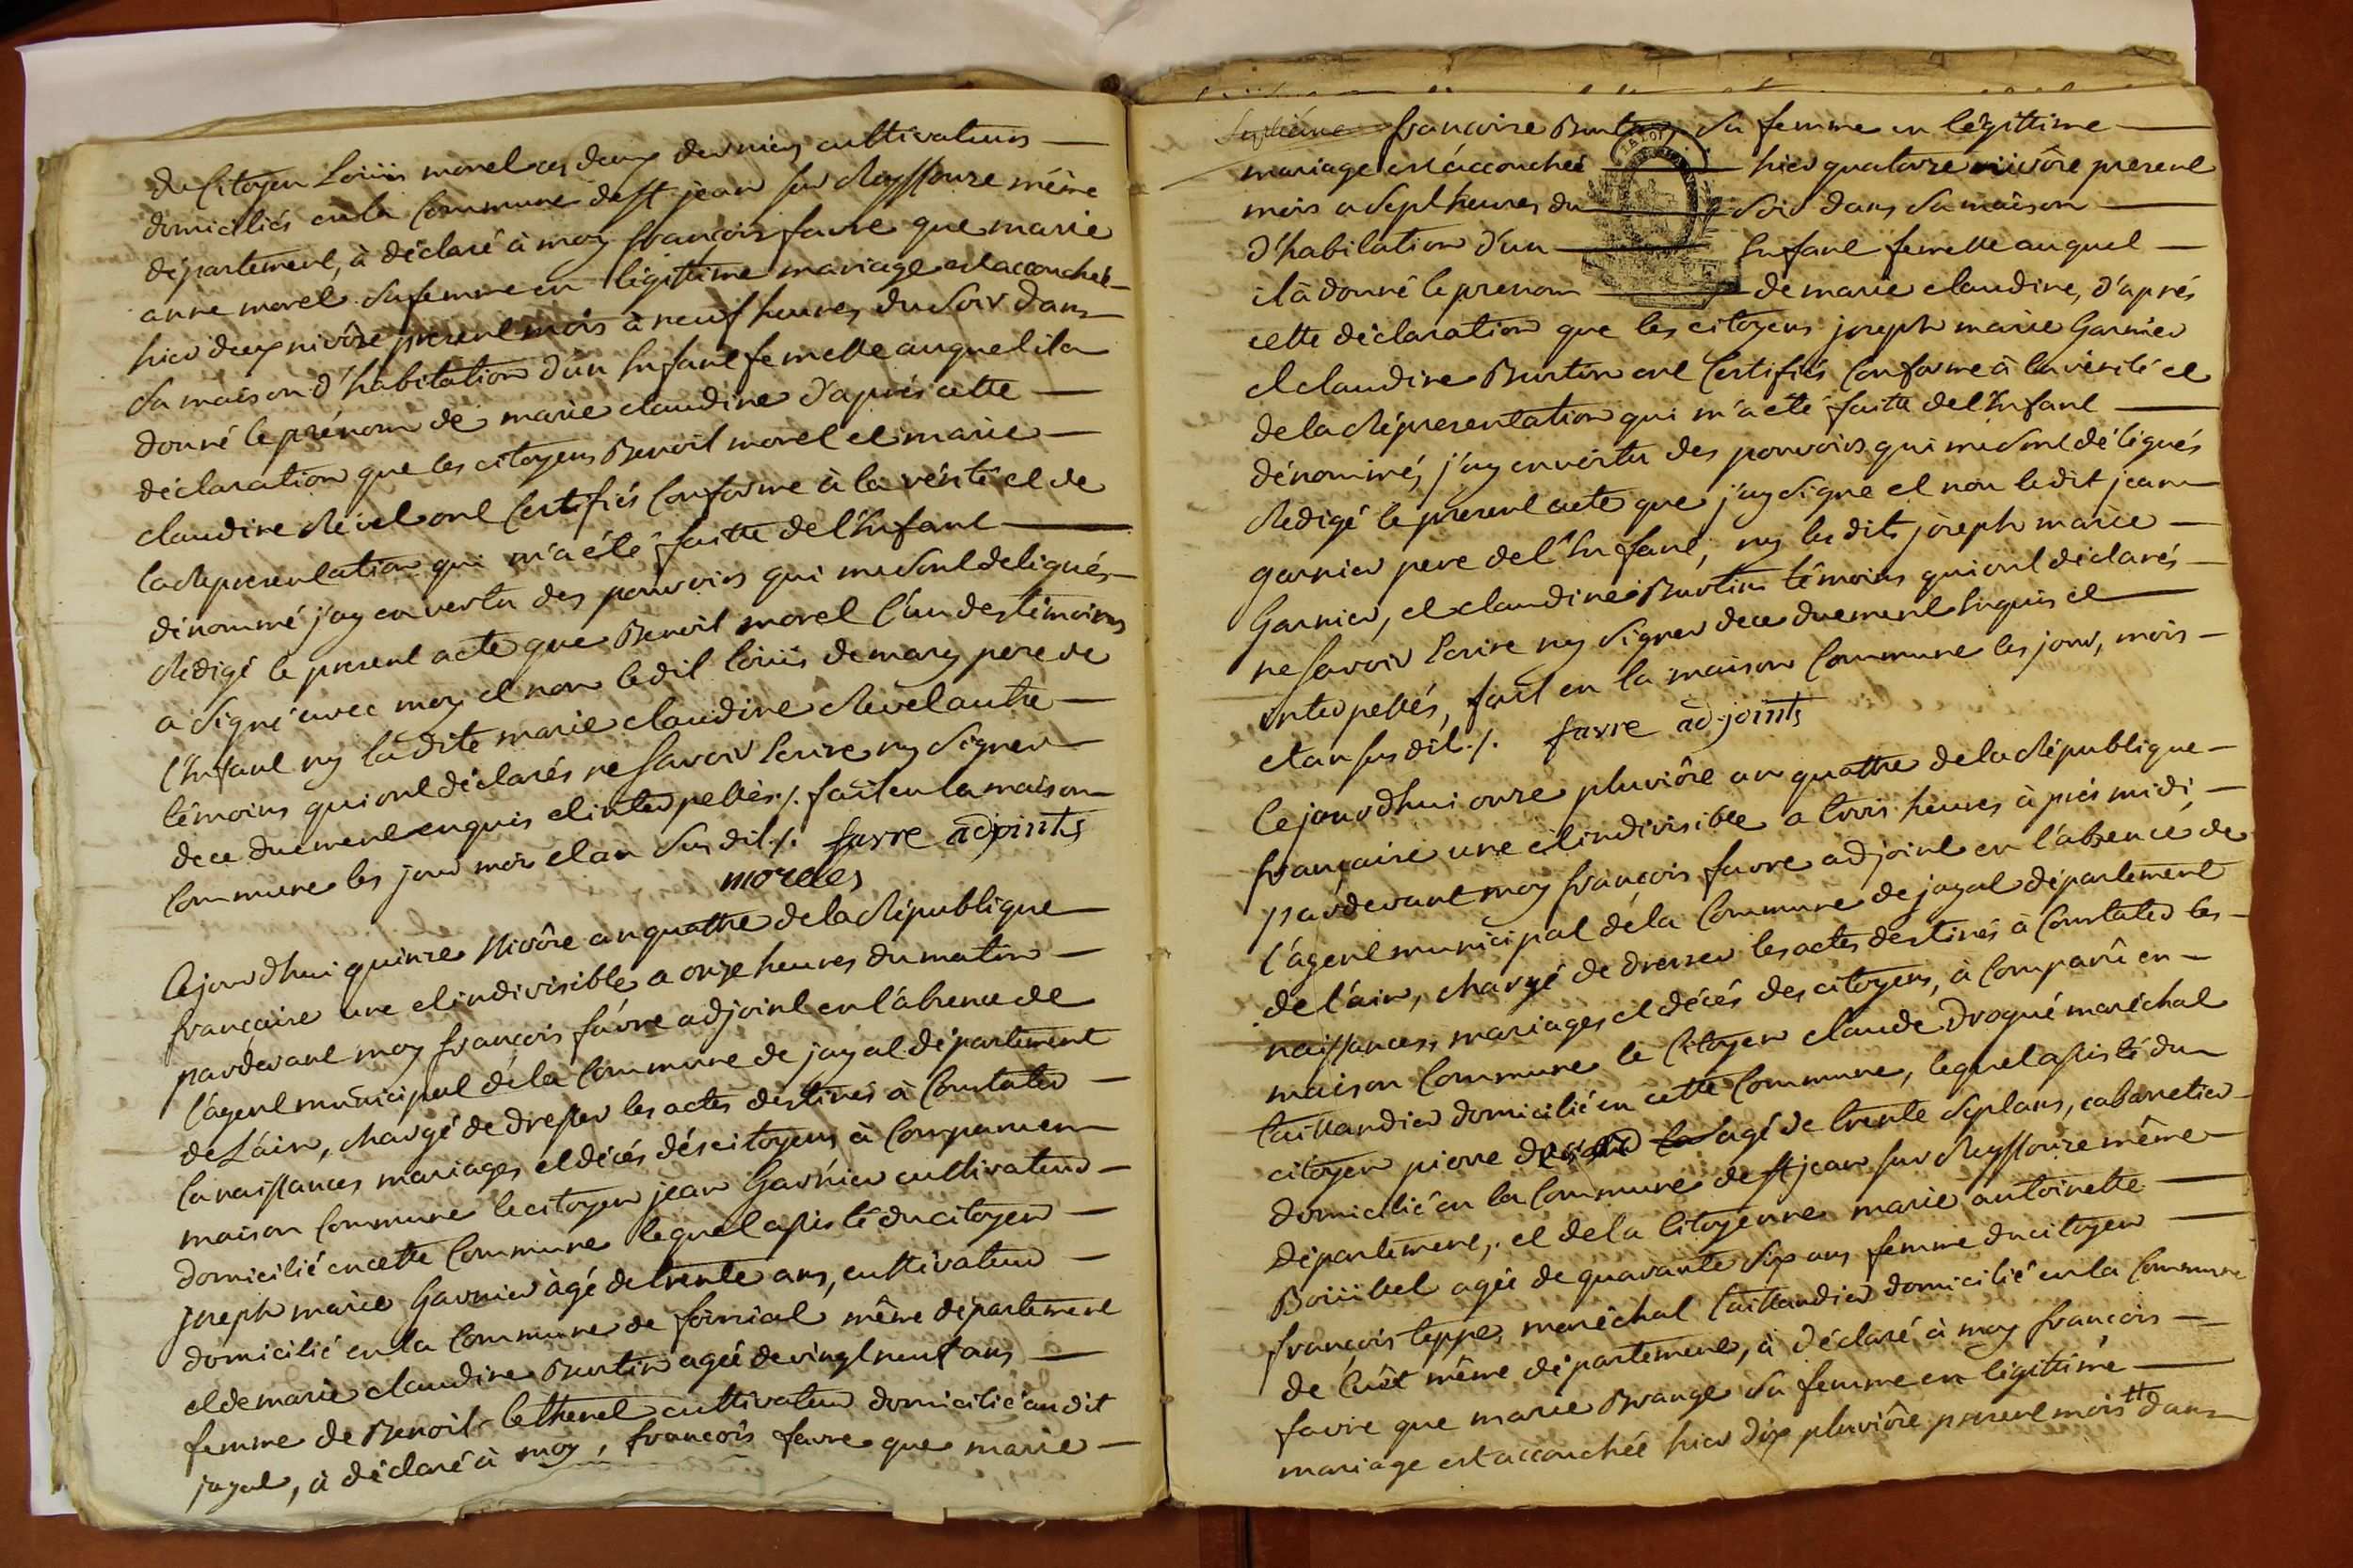 du Citoyen Loüis morel ces deux derniers cultivateurs
domiciliés en la Commune de st jean sur Reyssouze même
département, à déclaré à moy françois favre que marie
anne morel sa femme en légittime mariage est accouchée
hier deux nivôse present mois à neuf heures du soir dans
sa maison d'habitation d'un Enfant femelle auquel il a
donné le prénom de marie claudine d'aprés cette
déclaration que les citoyens Benoit morel et marie
claudine Revel ont Certifiés Conforme à la vérité et de
la Representation qui m'a été faitte de l'Enfant
dénommé j'ay en vertu des pouvoirs qui me sont deligués
Redigé le present acte que Benoit morel l'un des témoins
a signé avec moy et non ledit loüis demary pere de
l'Enfant ny la dite marie claudine Revel autre
témoins qui ont déclarés ne savoir Ecrire ny signer
de ce duement enquis et interpellés ./. fait en la maison
Commune les jour mois et an sus dit ./. favre adjoints
morel
Cejourdhui quinze Nivôse an quattre de la République
française une et indivisible a onze heures du matin
pardevant moy françois favre adjoint en l'absence de
l'agent municipal de la Commune de jayat département
de Lain, chargé de dresser les actes destinés à Constater
la naissances mariages et décés des citoyens à Comparu en
maison Commune le citoyen jean Garnier cultivateur
domicilié en cette Commune lequel assisté du citoyen
joseph marie Garnier àgé de trente ans, cultivateur
domicilié en la Commune de foissiat même département
et de marie claudine Burtin agée de vingt neuf ans
femme de Benoit lethenet cultivateur domicilié au dit
jayat, à déclaré à moy, françois favre que marie
françoise Burtin sa femme en légittime
mariage est accouchée hier quatorze nivôse present
mois a sept heures du soir dans sa maison
d'habitation d'un Enfant femelle auquel
il a donné le prenom de marie claudine, d'aprés
cette déclaration que les citoyens joseph marie Garnier
et claudine Burtin ont Certifiés Conforme à la vérité et
de la Répresentation qui m'a été faitte de l'Enfant
dénommé, j'ay en vertu des pouvoirs qui me sont délégués
Redigé le present acte que j'ay signé et non le dit jean
garnier pere de l'Enfant, ny les dits joseph marie
Garnier, et claudine Burtin témoins qui ont déclarés
ne savoir Ecrire ny signer de ce duement Enquis et
interpellés, fait en la maison Commune les jour, mois
et an sus dit ./. favre adjoints
Cejourdhui onze pluviôse an quattre de la République
française une et indivisible a trois heures àprés midi,
pardevant moy françois favre adjoint en l'absence de
l'agent municipal de la Commune de jayat département
de l'ain, chargé de dresser les actes destinés à Constater les
naissances, mariages et décés des citoyens, à Comparû en
maison Commune le Citoyen claude Drogué maréchal
taillandier domicilié en cette Commune, lequel assisté du
citoyen pierre agé de trente sept ans, cabaretier
domicilié en la Commune de st jean sur Reyssouze même
département, et de la Citoyenne marie antoinette
Boüillet agée de quarante six ans femme du citoyen
françois teppe maréchal taillandier domicilié en la Commune
de Cuêt même département, à déclaré à moy françois
favre que marie Brange sa femme en légittime
mariage est accouchée hier dix pluviôse present mois dans